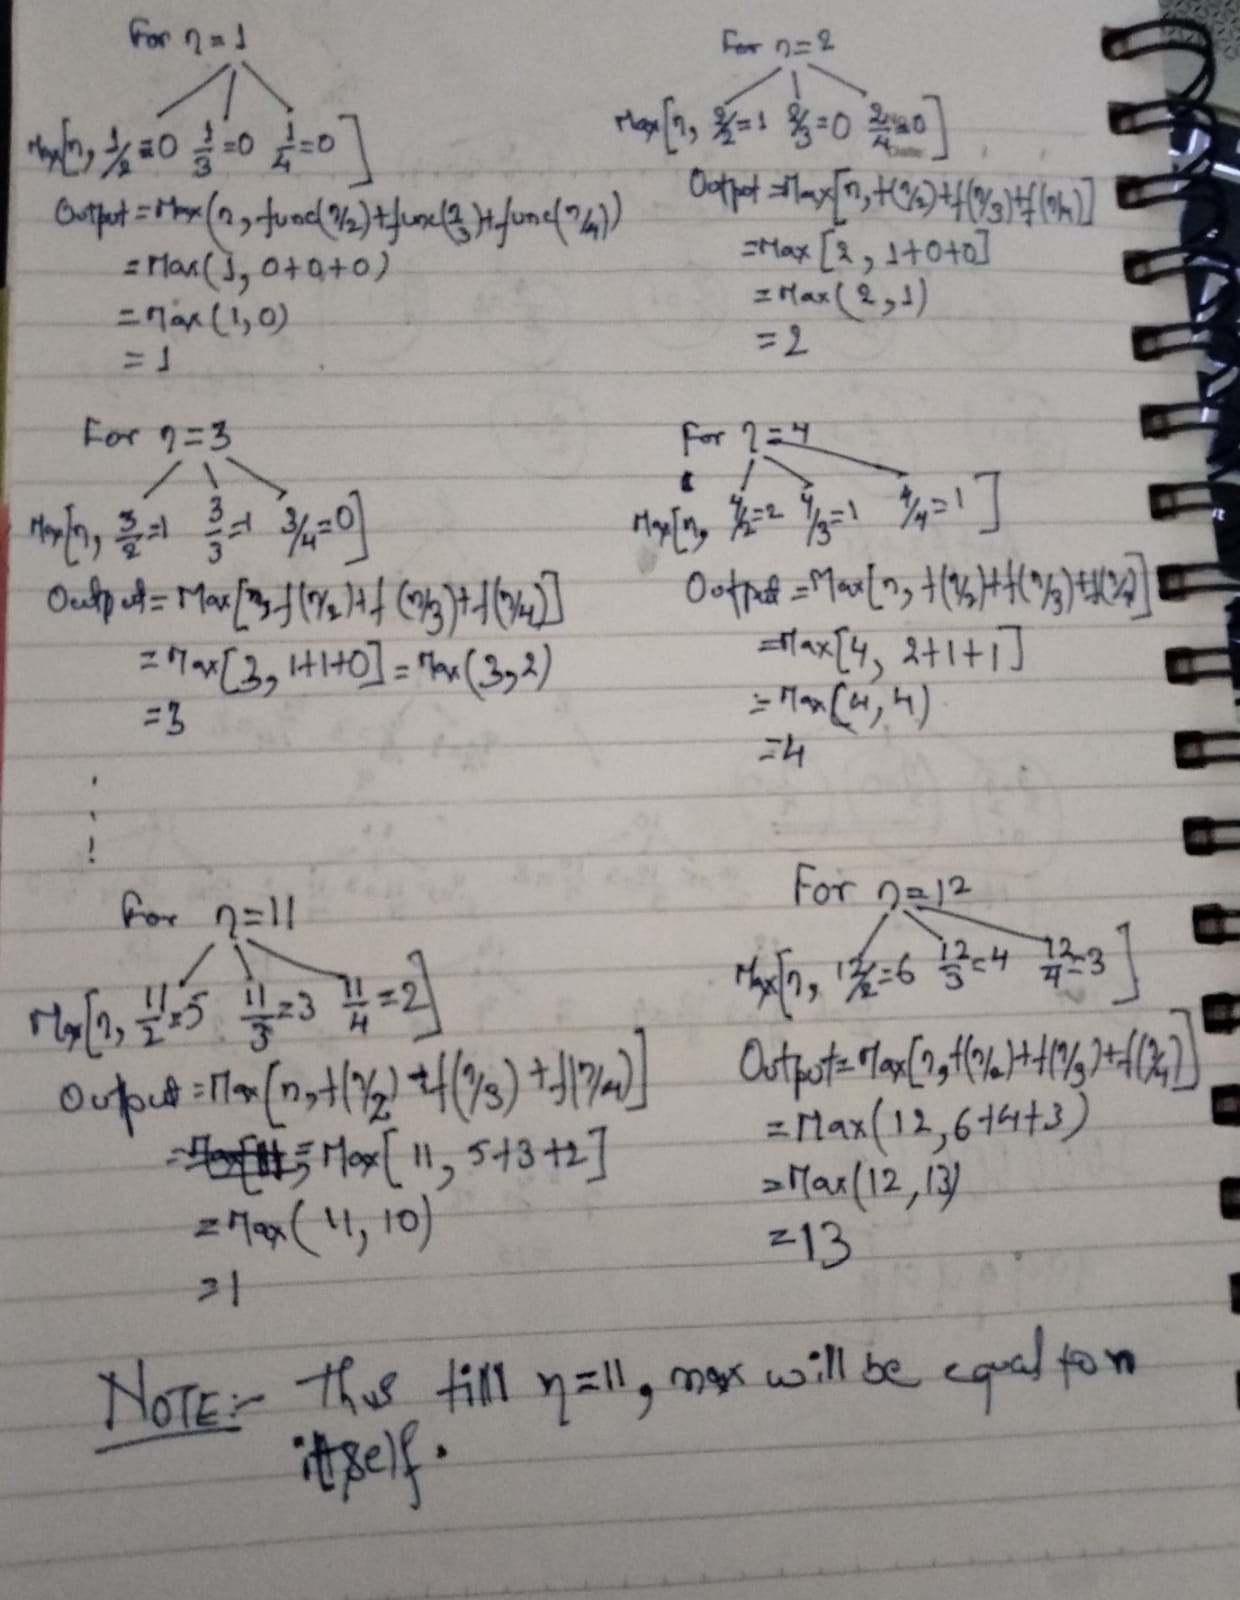 For n=1
Max[n, 1/2=0 1/3=0 1/4=0]
Output = Max(n, func(n/2)+func(n/3)+func(n/4))
=Max(1, 0+0+0)
=Max(1,0)
=1
For n=2
Max[n, 2/2=1 2/3=0 2/4=0]
Output=Max[n, f(n/2)+f(n/3)+f(n/4)]
=Max[2, 1+0+0]
=Max(2,1)
=2
For n=3
Max[n, 3/2=1 3/3=1 3/4=0]
Output= Max[n, f(n/2)+f(n/3)+f(n/4)]
=Max[3, 1+1+0]=Max(3,2)
=3
For n=4
Max[n, 4/2=2 4/3=1 4/4=1]
Output=Max[n, f(n/2)+f(n/3)+f(n/4)]
=Max[4, 2+1+1]
=Max(4,4)
=4
For n=11
Max[n, 11/2=5 11/3=3 11/4=2]
Output=Max[n, f(n/2)+f(n/3)+f(n/4)]
=Max[11, 5+3+2]
=Max(11,10)
=1
For n=12
Max[n, 12/2=6 12/3=4 12/4=3]
Output=Max[n, f(n/2)+f(n/3)+f(n/4)]
=Max(12,6+4+3)
=Max(12,13)
=13
NOTE:- Thus till n=11, max will be equal to n
itself.